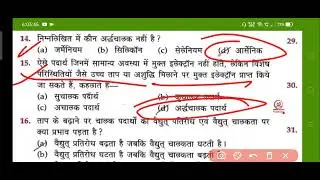 6:03:45
14. निम्नलिखित में कौन अर्द्धचालक नहीं है ?
(a) जर्मेनियम (b) सिलिकॉन (c) सेलेनियम (d) आर्सेनिक
29.
15. ऐसे पदार्थ जिनमें सामान्य अवस्था में मुक्त इलेक्ट्रॉन नहीं होते, लेकिन विशेष
परिस्थितियों जैसे उच्च ताप या अशुद्धि मिलाने पर मुक्त इलेक्ट्रॉन प्राप्त किये
जा सकते है, कहलाते है—
30.
(a) सुचालक पदार्थ (b) पदार्थ
(c) अचालक पदार्थ (d) अर्द्धचालक पदार्थ
16. ताप के बढ़ाने पर चालक पदार्थों का वैद्युत् प्रतिरोध एवं वैद्युत् चालकता पर
क्या प्रभाव पड़ता है ?
31.
(a) वैद्युत् प्रतिरोध बढ़ता है जबकि वैद्युत् चालकता घटती है।
(b) वैद्युत् प्रतिरोध घटता है जबकि वैद्युत् चालकता बढ़ती